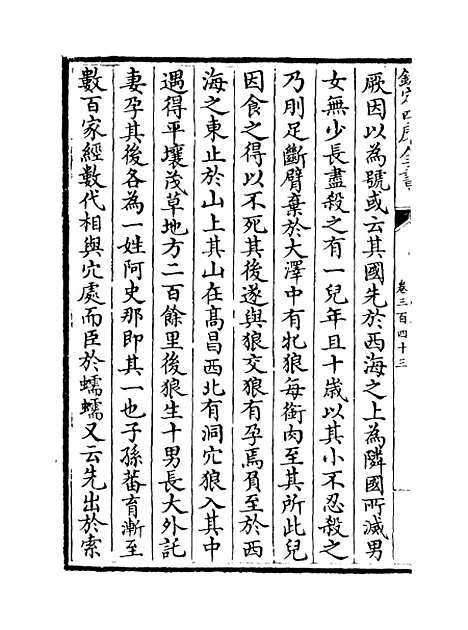 欽定四庫全書
卷三百四十三
厥因以為號或云其國先於西海之上為隣國所滅男
女無少長盡殺之有一兒年且十歲以其小不忍殺之
乃刖足斷臂棄於大澤中有牝狼每銜肉至其所此兒
因食之得以不死其後遂與狼交狼有孕焉負至於西
海之東止於山上其山在髙昌西北有洞穴狼入其中
遇得平壤茂草地方二百餘里後狼生十男長大外託
妻孕其後各為一姓阿史那即其一也子孫蕃育漸至
數百家經數代相與穴處而臣於蠕蠕又云先出於索